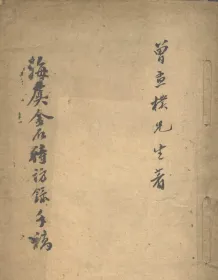 曾惠樸先生著
海虞金石待訪錄手稿